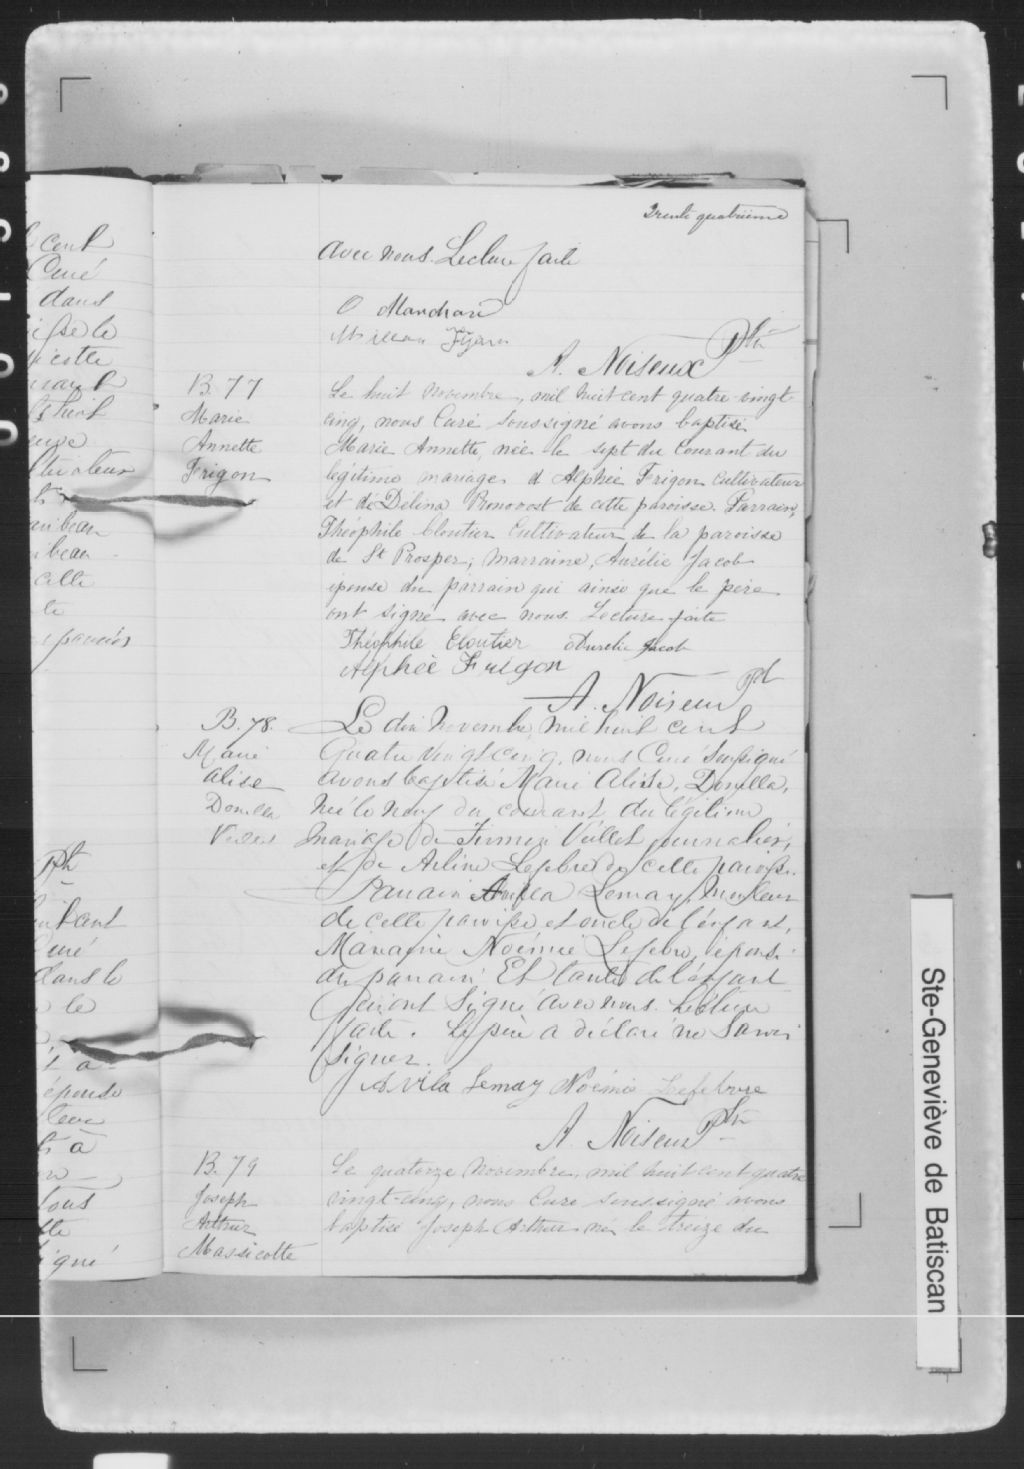 Trente quatrième
avec nous. Lecture faite
O Marchand
A. Noiseux Ptre
B. 77
Marie
Annette
Frigon
Le huit novembre, mil huit cent quatre-vingt
cinq, nous Curé soussigné avons baptisé
Marie Annette, née le sept du courant du
légitime mariage d'Alphée Frigon cultivateur
et de Délina Pronovost de cette paroisse. Parrain,
Théophile Cloutier Cultivateur de la paroisse
de St Prosper; marraine, Aurélie Jacob
épouse du parrain qui ainsi que le père
ont signé avec nous. Lecture faite
Théophile Cloutier Aurelie Jacob
Alphée Frigon
A. Noiseux Pt
B. 78.
Marie
Alise
Donilla
Veillet
Le dix novembre, mil huit cent
Quatre vingt cinq, nous Curé soussigné
avons baptisé Marie Alise, Donilla,
née le neuf du courant, du légitime
mariage de Firmin Veillet journalier,
et de Arline Lefebre de cette paroisse.
Parrain Lemay,
de cette paroisse et oncle de l'enfant,
Marraine Noémie Lefebre, épouse
du parrain Et tante de l'enfant
qui ont signé avec nous. Lecture
faite. Le père a déclaré ne savoir
signer.
Avila Lemay Noémie Lefebvre
A. Noiseux Ptre
B. 79
Joseph
Arthur
Massicotte
Le quatorze novembre, mil huit cent quatre
vingt-cinq, nous Curé soussigné avons
baptisé Joseph Arthur né le treize du
cent
Curé
dans
épouse
à
tous
Ptre
dans le
le
Ste-Geneviève de Batiscan